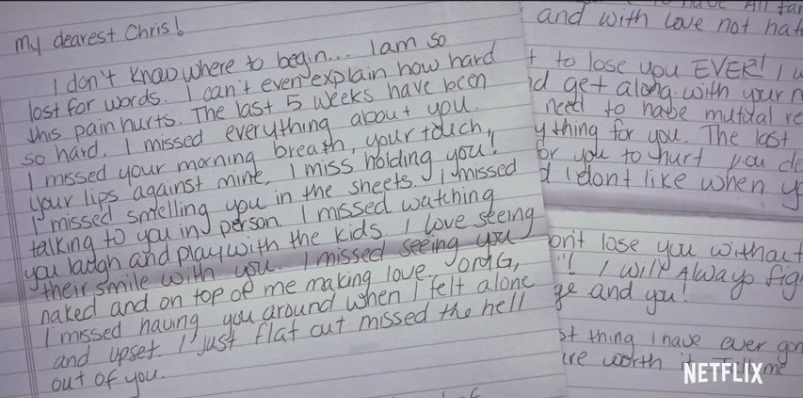 My dearest Chris!
I don't know where to begin... I am so
lost for words. I can't even explain how hard
this pain hurts. The last 5 weeks have been
so hard. I missed everything about you.
I missed your morning breath, your touch,
your lips against mine. I miss holding you!
I missed smelling you in the sheets. I missed
talking to you in person. I missed watching
you laugh and play with the kids I love seeing
their smile with you. I missed seeing you
naked and on top of me making love. OMG,
I missed having you around when I felt alone
and upset. I just flat out missed the hell
out of you.
and with love not
to lose you EVER! I
get along with your
need to habe mutual
ything for you. The last
for you to hurt you
I dont like when
lose you without
I will Always
and you!
thing I have ever
worth
me
NETFLIX